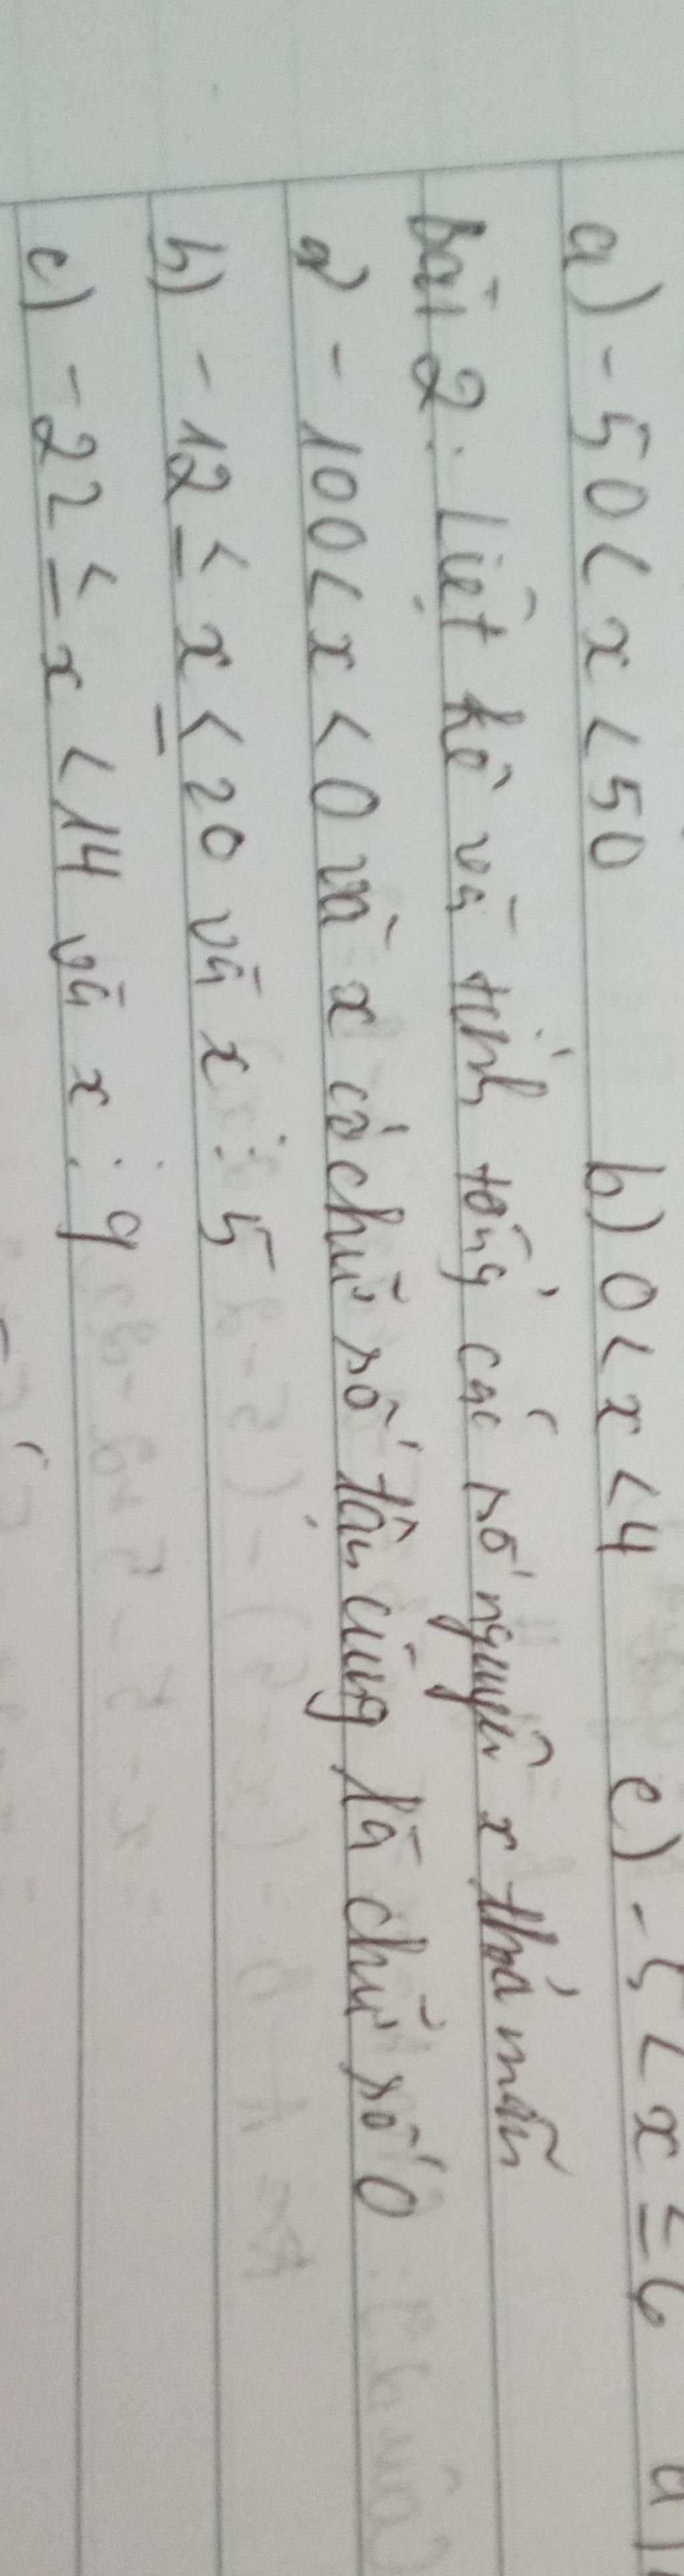 a) -50 < x < 50 b) 0 < x < 4 c) -5 < x ≤ 6
bài 2: Liệt kê và tính tổng các số nguyên x thoả mãn
a) -100 < x < 0 và x có chữ số tận cùng là chữ số 0
b) -12 ≤ x ≤ 20 và x ⋮ 5
c) -22 ≤ x < 14 và x ⋮ 9